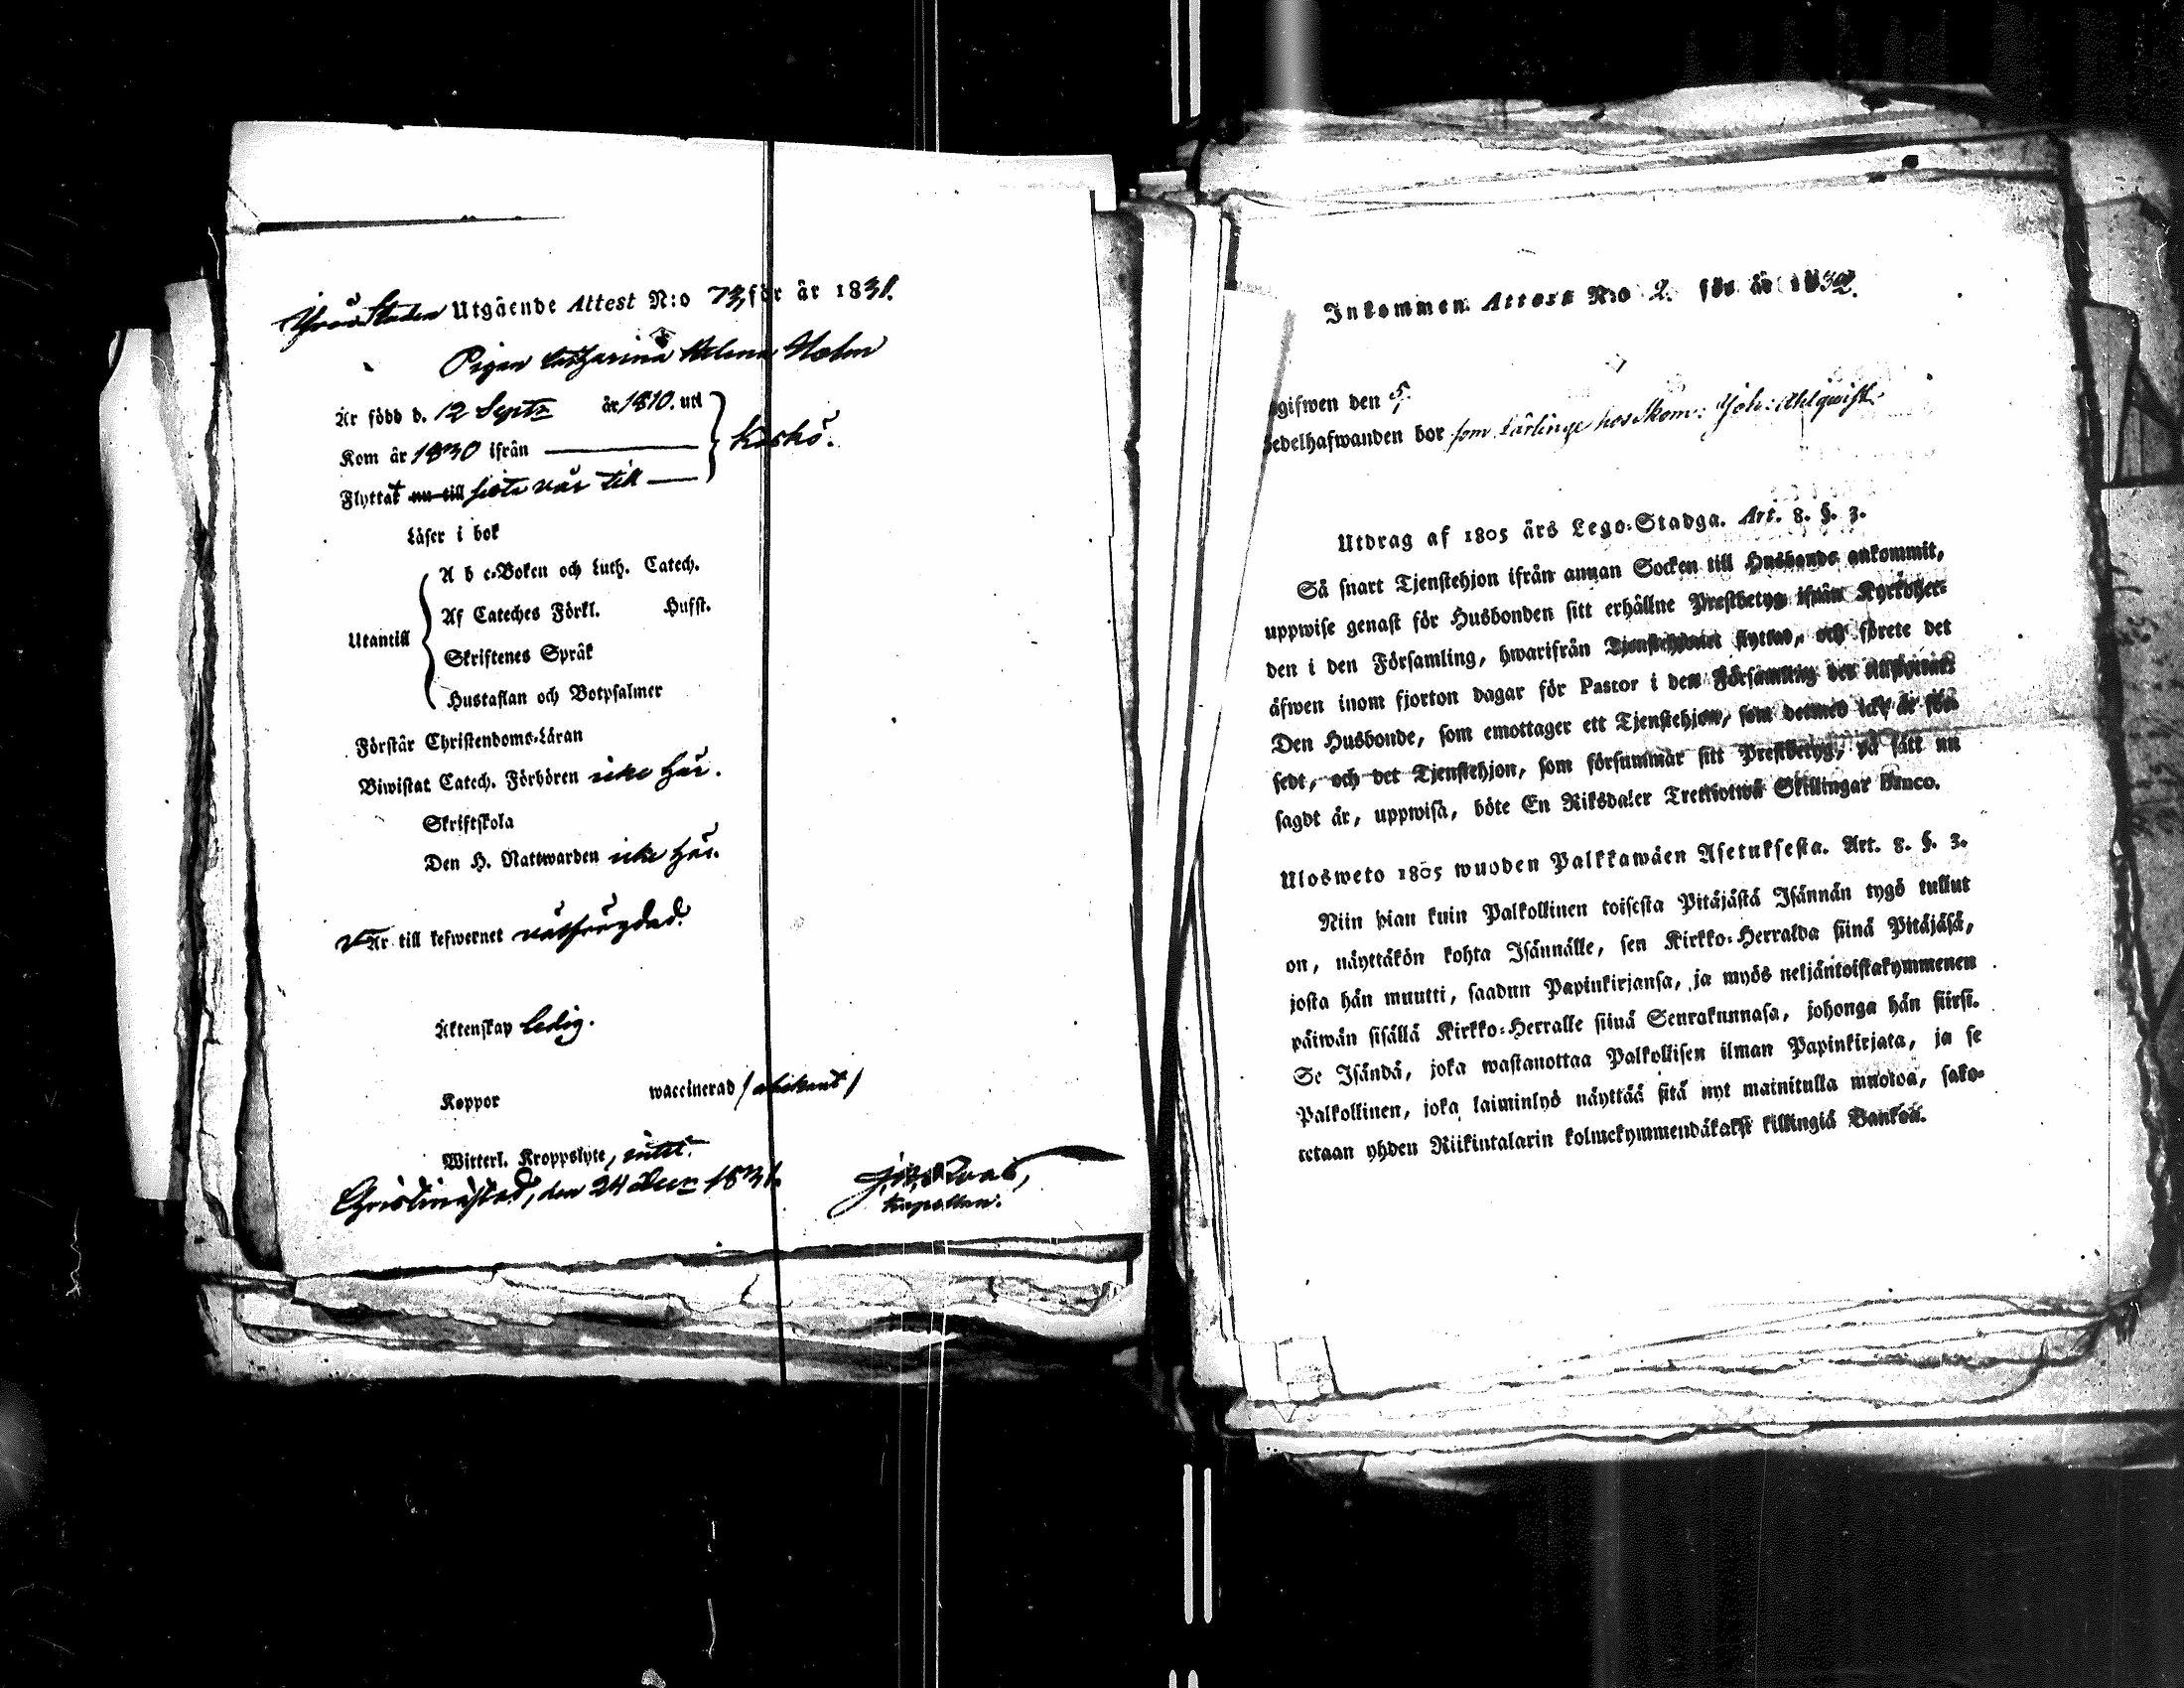 ifrån Staden Utgående Attest N:o 73 för år 1831.
Pigan Catharina Helena Holm
Är född d. 12 Septr år 1810. uti
Kom år 1830 ifrån
Kaskö.
Flyttat nu till sista vår till
Läser i bok
A b c-Boken och Luth. Catech.
Af Cateches Förkl. Husst.
Utantill
Skriftenes Språk
Hustaflan och Botpsalmer
Förstår Christendoms-Läran
Biwistat Catech. Förhören icke här.
Skriftskola
Den H. Nattwarden icke här.
Är till lefwernet välfrägdad.
Äktenskap ledig.
Koppor waccinerad
Witterl. Kroppslyte, intet.
Christinæstad, den 24 Decr 1831.
Kapellan.
Inkommen Attest N:o 2. för år 1832.
gifwen den 5.
edelhafwanden bor som Lärlinge hos Kom: Joh: Ahlqwist.
Utdrag af 1805 års Lego-Stadga. Art. 8. §. 3.
Så snart Tjenstehjon ifrån annan Socken till Husbonde ankommit,
uppwise genast för Husbonden sitt erhållne Prestbetyg ifrån Kyrkoher-
den i den Församling, hwarifrån Tjenstehjonet flyttat, och förete det
äfwen inom fjorton dagar för Pastor i den Församling der
Den Husbonde, som emottager ett Tjenstehjon, som dermed icke är för-
sedt, och det Tjenstehjon, som försummar sitt Prestbetyg, på sätt nu
sagdt är, uppwisa, böte En Riksdaler Trettiotwå Skillingar Banco.
Ulosweto 1805 wuoden Palkkawäen Asetuksesta. Art. 8. §. 3.
Niin pian kuin Palkollinen toisesta Pitäjästä Isännän tygö tullut
on, näyttäkön kohta Isännälle, sen Kirkko-Herralda siinä Pitäjäsä,
josta hän muutti, saadun Papinkirjansa, ja myös neljäntoistakymmenen
päiwän sisällä Kirkko-Herralle siinä Seurakunnasa, johonga hän siirsi.
Se Isändä, joka wastanottaa Palkollisen ilman Papinkirjata, ja se
Palkollinen, joka laiminlyö näyttää sitä nyt mainitulla muotoa, sako-
tetaan yhden Riikintalarin kolmekymmendäkaksi killingiä Bankoa.